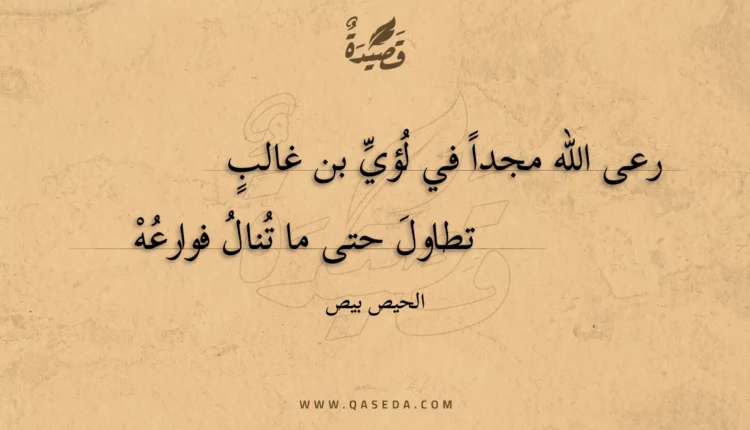 قَصِيدَةٌ
رعى الله مجداً في لُؤيِّ بن غالبٍ
تطاولَ حتى ما تُنالُ فوارعُهْ
الحيص بيص
WWW.QASEDA.COM